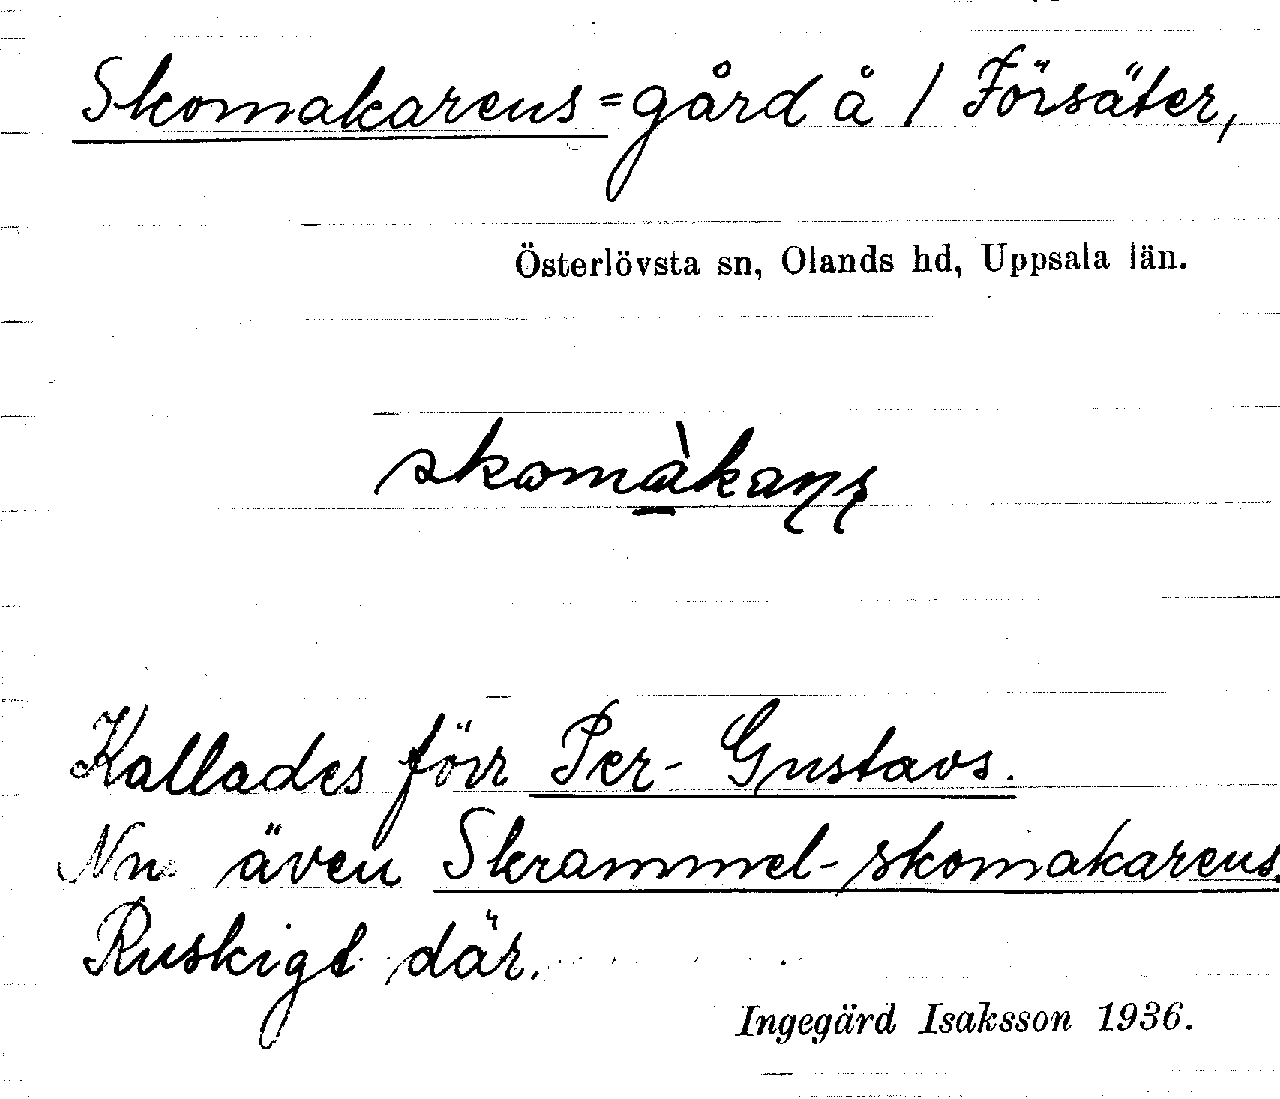 Skomakarens=gård å / Försäter,
Österlövsta sn, Olands hd, Uppsala län.
skomàkaṇṣ
Kallades förr Per-Gustavs.
Nu även Skrammel-skomakarens.
Ruskigt där.
Ingegärd Isaksson 1936.